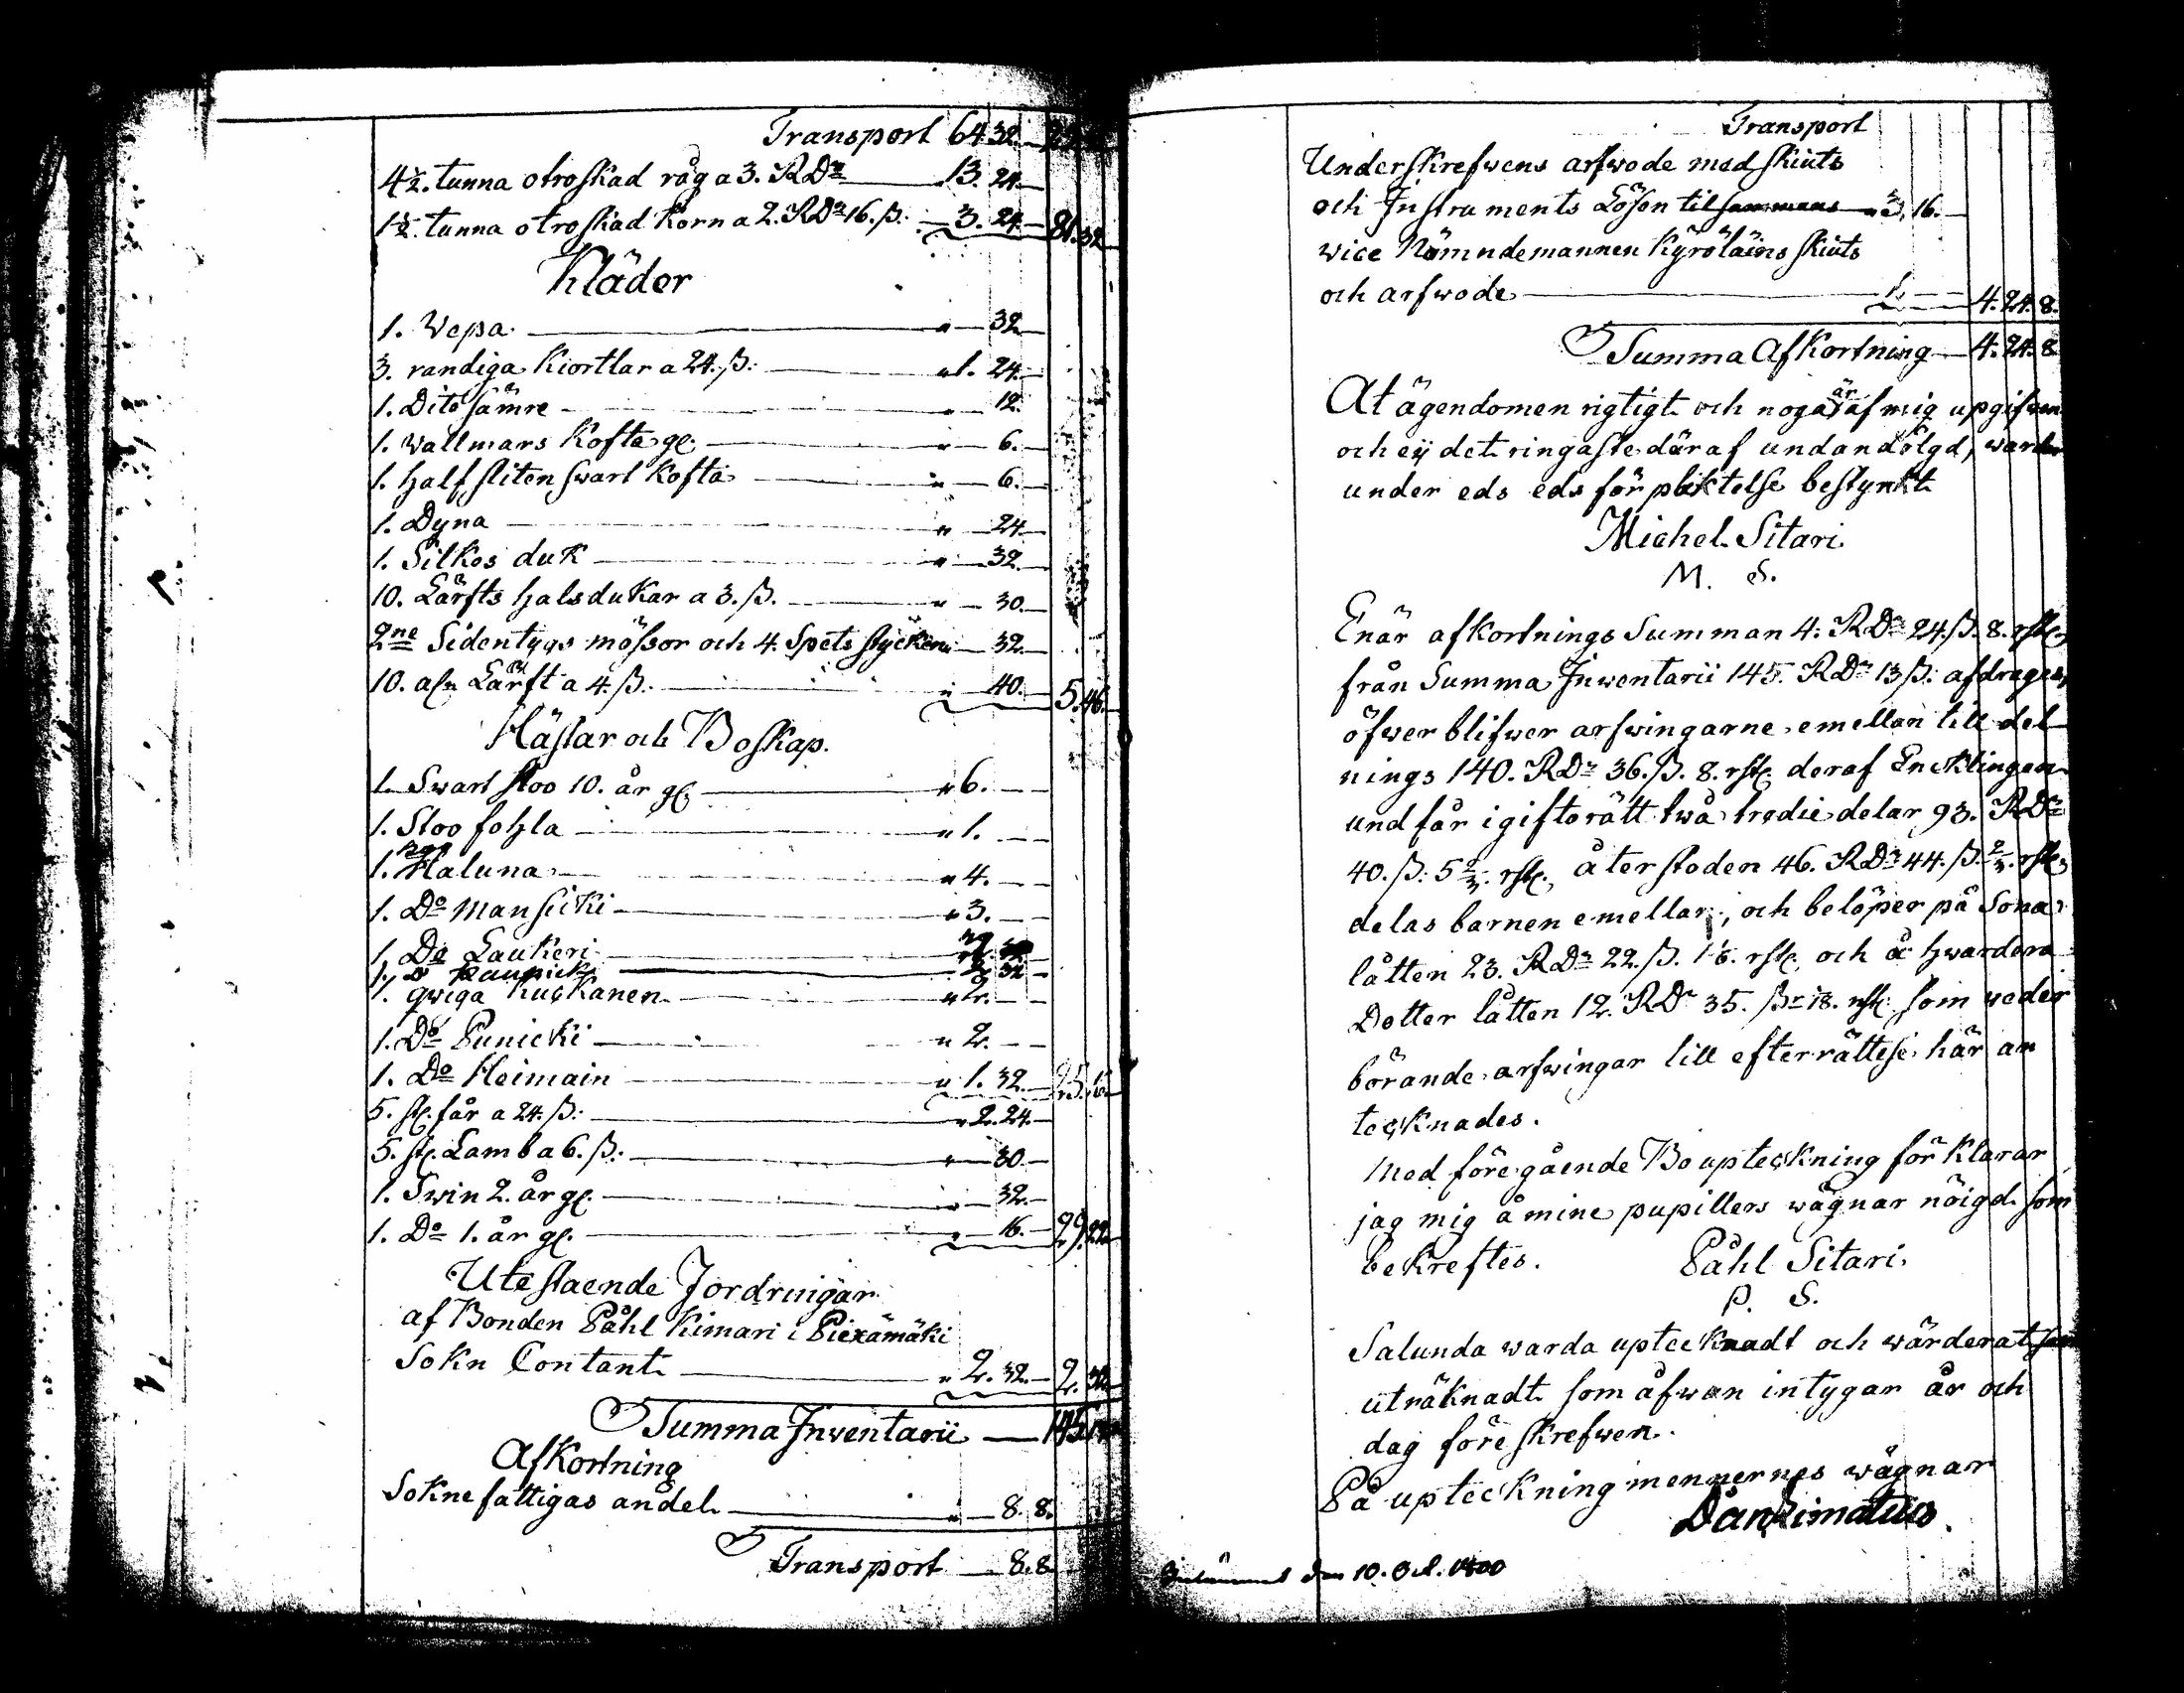 Transport 64. 32.
4½. tunna otroskad råg a 3. RDr 13. 24.
1½. tunna otroskad Korn a 2. RDr 16. ß. 3. 24. 81. 32
Kläder
1. Vepa " 32
3. randiga Kiortlar a 24. ß. " 1. 24.
1. Dito sämre " 12.
1. Wallmars Kofta gl. " 6.
1. half sliten swart Kofta " 6.
1. Dyna " 24
1. Silkes duk " 32.
10. Lärfts halsdukar a 3. ß. " 30.
2ne Sidentygs mössor och 4. Spets stycken " 32.
10. aln Lärft a 4. ß. " 40. 5. 46.
Hästar och Boskap.
1. Swart stoo 10. år gl. " 6.
1. Stoo fohla " 1.
1. Koo Haluna " 4.
1. Do Mansicki " 3.
1. Do Laukeri
1. D Paunicki 2. 32
1. qwiga Kuckanen " 2.
1. Do Punicki " 2.
1. Do Heimain " 1. 32. 25. 16
5. st. får a 24. ß. " 2. 24.
5. st. Lamb a 6. ß. " 30.
1. Swin 2. år gl. " 32.
1. Do 1. år gl. " 16. 29. 22
Utestaende Fordringar
af Bonden Påhl Kimari i Piexämäki
Sokn Contant " 2. 32. 2. 32
Summa Inventarii 145. 13
Afkortning
Sokne fattigas andel " 8. 8.
Transport 8. 8
Transport
Underskrefwens arfwode med skiuts
och Instruments Lösen tilsammans " 3, 16.
wice Nämndemannen Kÿröläins skiuts
och arfwode 1. 4. 24. 8.
Summa Afkortning 4. 24. 8
At ägendomen rigtigt och noga är af mig upgifwen
och eÿ det ringaste däraf undandölgd, warder
under eds eds förpliktelse bestyrkt
Michel Sitari.
M. S.
Enär afkortnings Summan 4. RDr 24. ß. 8. rst.
från Summa Inwentarii 145. RDr 13 ß. afdrages,
öfwer blifwer arfwingarne emellan till del
nings 140. RDr 36. ß. 8. rst. deraf Encklingen
undfår i giftorätt twå tredie delar 93. RDr
40. ß. 5⅔. rst., återstoden 46. RDr 44. ß. ⅔. rst.
delas barnen emellan, och belöper på Sona
låtten 23. RDr 22. ß. rst. och å hwardera
Dotter låtten 12. RDr 35. ß rst. som weder
börande arfwingar till efterrättelse här an
tecknades.
Med föregående Bouptekning förklarar
jag mig å mine pupillers wägnar nöigd som
bekreftes. Påhl Sitari.
P. S.
Salunda warda uptecknadt och wärderat samt
uträknadt som äfwen intygar år och
dag föreskrefwen.
På upteckningmennernes wägnar
Dan Limatius.
den 10. Oct. 1800